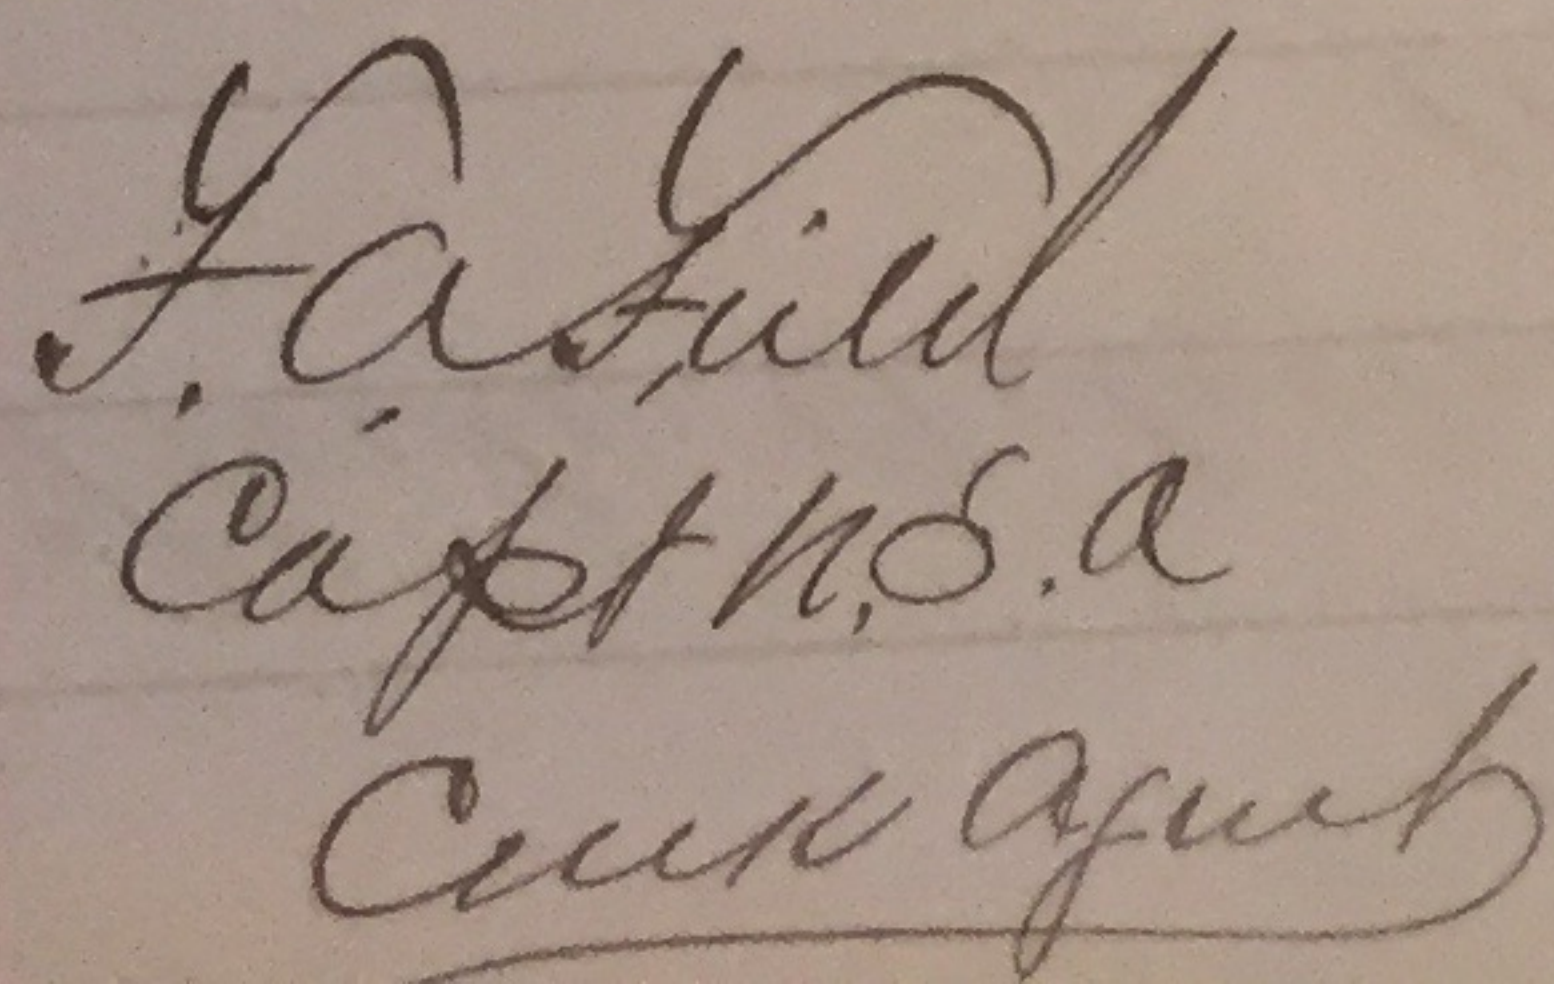 F. A. Field
Capt U.S. A
Creek Agent